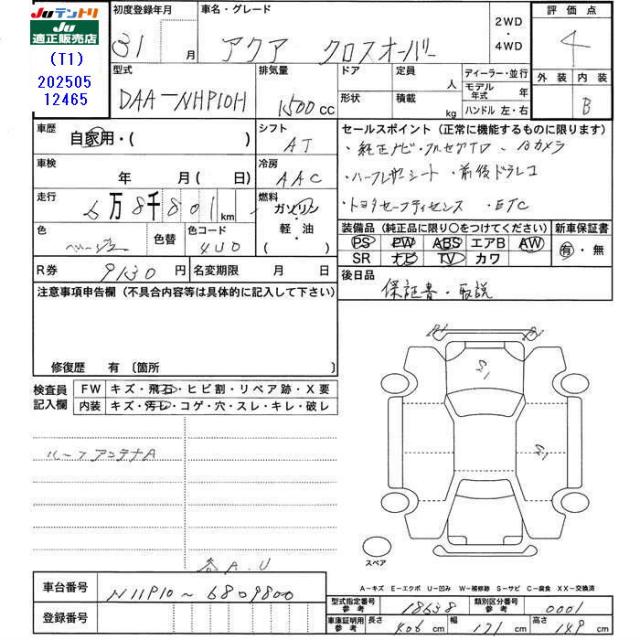 JUテントリ
JU
適正販売店
(T1)
202505
12465
初度登録年月
31
月
車名・グレード
アクア クロスオーバー
2WD
・
4WD
評価点
4
外装 内装
B
型式
DAA-NHP10H
排気量
1500cc
ドア 定員
人
形状 積載
kg
ディーラー・並行
モデル年式 年
ハンドル 左・右
車歴
自家用・( )
シフト
AT
車検
年 月( 日)
冷房
AAC
走行
6万8千801km
燃料
ガソリン
・
軽・油
色
ベージュ
色替
色コード
4U0
R券 9130円
名変期限 月 日
セールスポイント(正常に機能するものに限ります)
・純正ナビ・フルセグTV・Bカメラ
・ハーフレザーシート・前後ドラレコ
・トヨタセーフティセンス・ETC
装備品(純正品に限り○をつけてください)
PS PW ABS エアB AW
SR ナビ TV カワ
新車保証書
有・無
後日品
保証書・取説
注意事項申告欄(不具合内容等は具体的に記入して下さい)
修復歴 有〔箇所 〕
検査員
記入欄
FW キズ・飛石・ヒビ割・リペア跡・X要
内装 キズ・汚レ・コゲ・穴・スレ・キレ・破レ
ルーフアンテナA
各A.U
S1
S1
スペア
A-キズ E-エクボ U-凹み W-補修跡 S-サビ C-腐食 XX-交換済
車台番号
NHP10-6809800
登録番号
型式指定番号
参考
18638
類別区分番号
参考
0001
車庫証明用
参考
長さ 406cm
幅 171cm
高さ 149cm